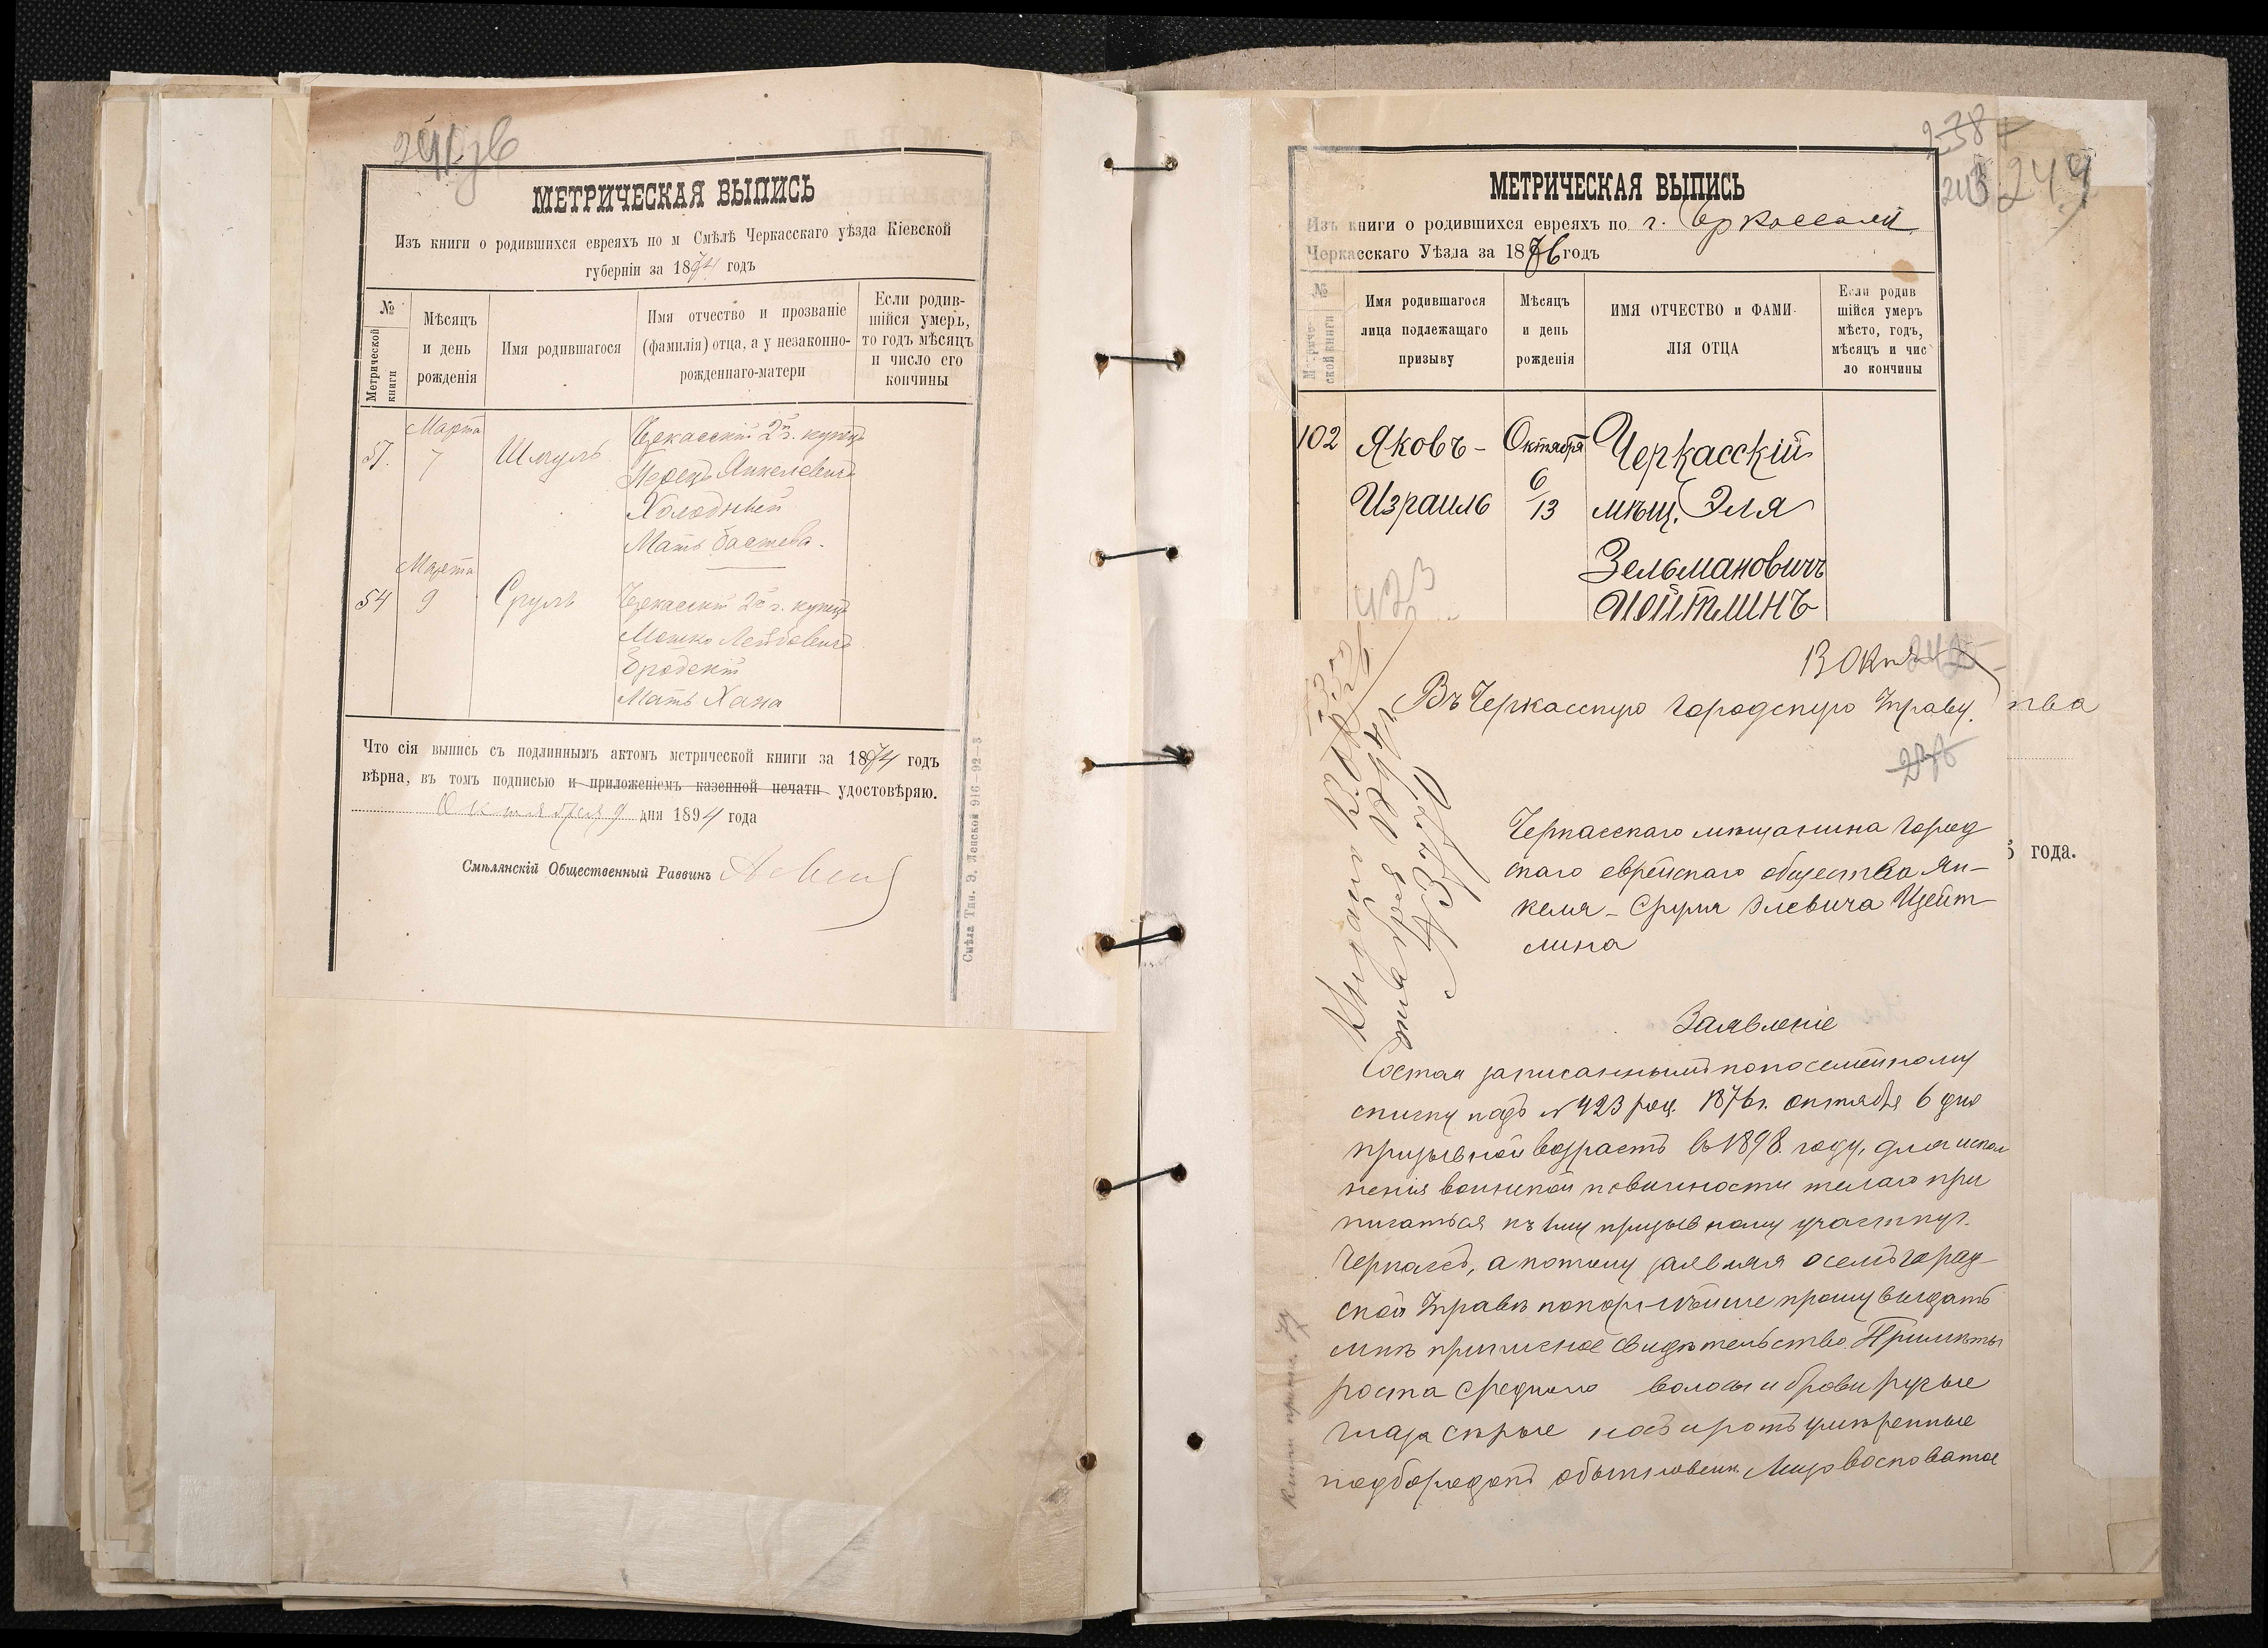 241 зв
МЕТРИЧЕСКАЯ ВЫПИСЬ
Изъ книги о родившихся евреяхъ по м Смѣлѣ Черкасскаго уѣзда Кіевской
губерніи за 1874 годъ
№
Метрической
книги
Мѣсяцъ
и день
рожденія
Имя родившагося
Имя отчество и прозваніе
(фамилія) отца, а у незаконно-
рожденнаго-матери
Если родив-
шійся умеръ,
то годъ мѣсяцъ
и число его
кончины
Марта
7
Шмуль
Черкасскій 2й г. купецъ
Перецъ Янкелевичъ
Холодный
Мать Бастева.
54
Марта
9
Сруль
Черкасскій 2й г. купецъ
Мошко Лейбовичъ
Бродскій
Мать Хана
Что сія выпись съ подлиннымъ актомъ метрической книги за 1874 годъ
вѣрна, въ томъ подписью и приложеніемъ казенной печати удостовѣряю.
Октября 9 дня 1894 года
Смѣлянскій Общественный Раввинъ
Смѣла Тип. Э. Ленской 916-92-3
238
243 244
МЕТРИЧЕСКАЯ ВЫПИСЬ
Изъ книги о родившихся евреяхъ по г. Черкассамъ
Черкасскаго Уѣзда за 1876 годъ
№
Метриче-
ской книги
Имя родившагося
лица подлежащаго
призыву
Мѣсяцъ
и день
рожденія
ИМЯ ОТЧЕСТВО и ФАМИ-
ЛІЯ ОТЦА
Если родив
шійся умеръ
мѣсто, годъ,
мѣсяцъ и чис
ло кончины
102
Яковъ-
Израиль
Октября
6/13
Черкасскій
мѣщ. Эля
Зельмановичъ
Цейтлинъ
423
13 Окт
242
Въ Черкасскую Городскую Управу.
тва
Черкасскаго мѣщанина город
скаго еврейскаго общества Ян-
келя-Сруля Элевича Цейт-
лина
5 года.
Заявленіе
Состоя записаннымъ по посемейному
списку подъ №423 род. 1876г. октября 6 дня
призывной возрастъ въ 1898 году, для испол
ненія воинской повинности желаю при
писаться къ 1му призывному участку г.
Черкассъ, а потому заявляя о семъ город-
ской Управѣ покорнѣйше прошу выдать
мнѣ приписное свидѣтельство. Примѣты
роста средняго волосы и брови русые
глаза сѣрые носъ и ротъ умѣренные
подбородокъ обыкновен. Лицо восповатое